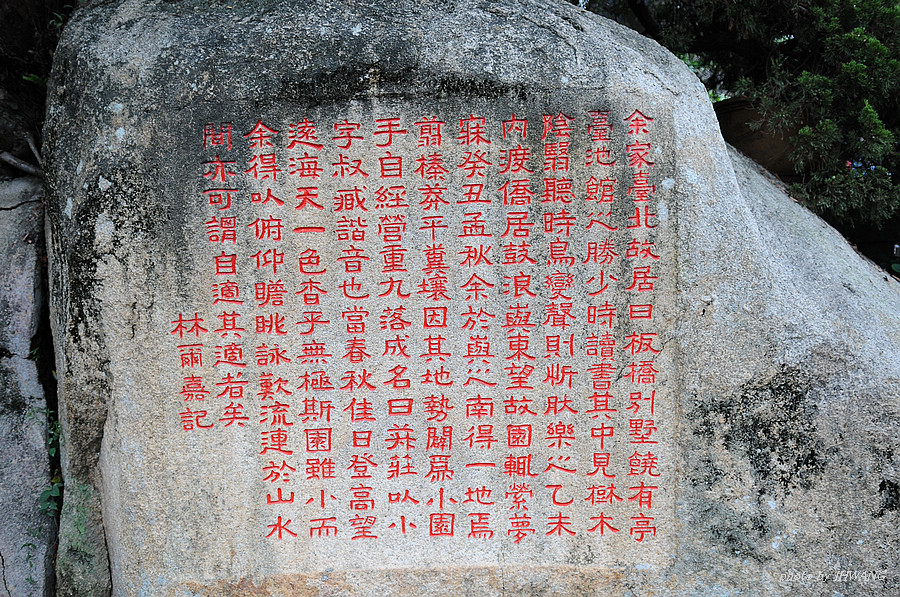 余家臺北故居曰板橋別墅饒有亭
臺池館之勝少時讀書其中見樹木
陰翳聽時鳥變聲則忻肰樂之乙未
內渡僑居鼓浪嶼東望故園輒縈夢
寐癸丑孟秋余於嶼之南得一地焉
翦榛莽平糞壤因其地勢闢爲小園
手自經營重九落成名曰菽莊以小
字叔臧諧音也當春秋佳日登高望
遠海天一色杳乎無極斯園雖小而
余得以俯仰瞻眺詠歎流連於山水
間亦可謂自適其適者矣
林爾嘉記
photo by JHWANG